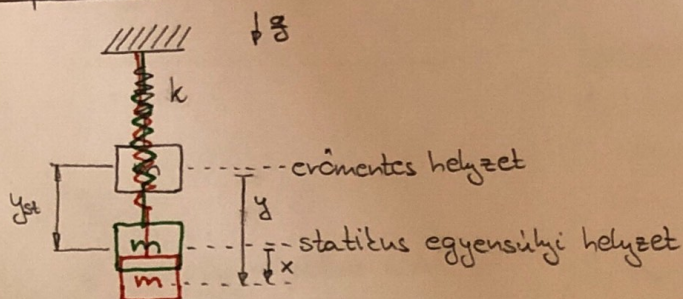 g
k
erőmentes helyzet
yst
y
m
statikus egyensúlyi helyzet
x
m